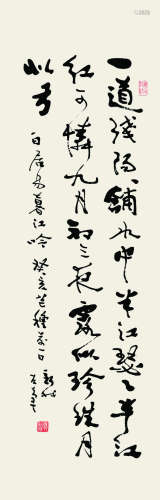 一道残陽舖水中半江瑟々半江
红可憐九月初三夜露似珍珠月
似弓
白居易暮江吟 癸亥芒種前一日